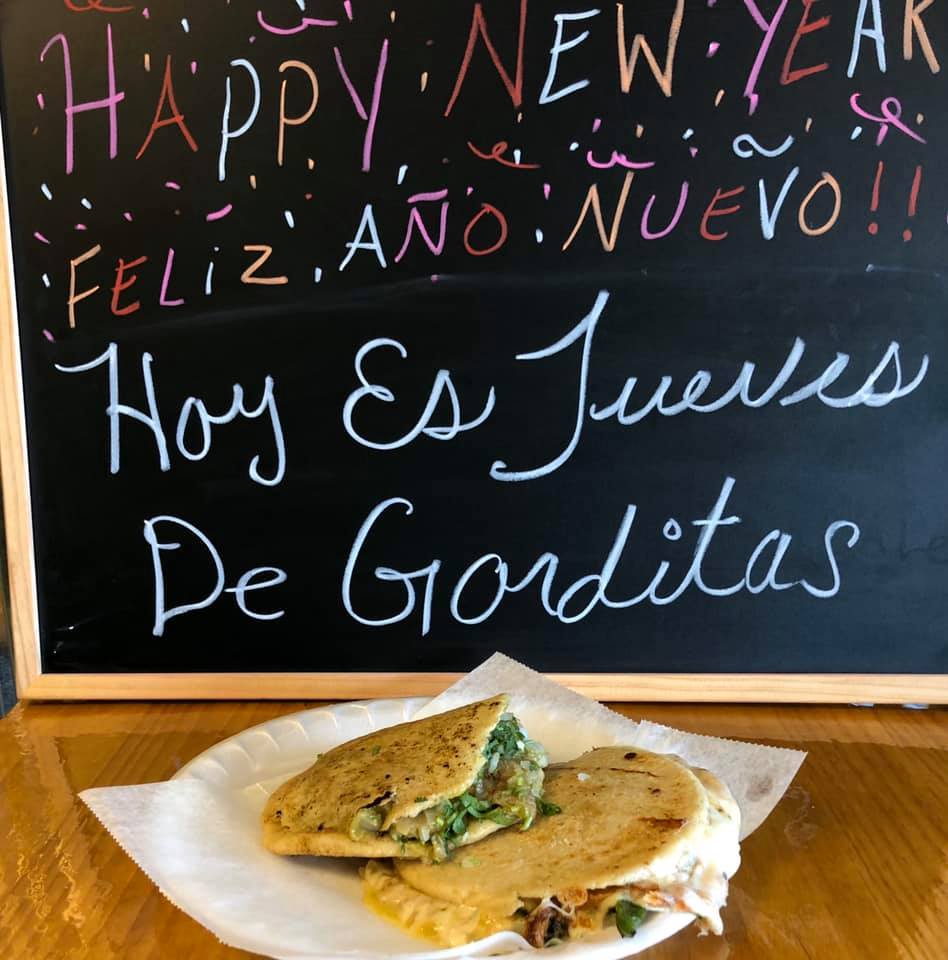 HAPPY NEW YEAR
FELiZ AÑO NUEVO!!
Hoy Es Jueves
De Gorditas